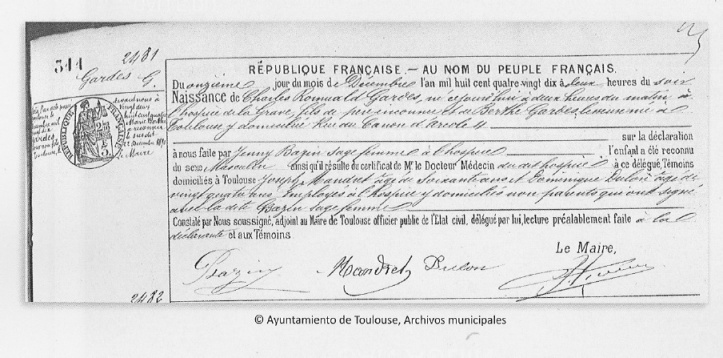 311
2481
Gardes G.
RÉPUBLIQUE FRANÇAISE. — AU NOM DU PEUPLE FRANÇAIS.
Du onzième jour du mois de Décembre l'an mil huit cent quatre vingt dix à deux heures du soir
Naissance de Charles Romuald Gardes, né aujourd'hui à deux heures du matin, à
l'hospice de la Grave, fils de père inconnu et de Berthe Gardes, née à
Toulouse y domiciliée Rue du Canon d'Arcole 4
sur la déclaration
à nous faite par Jenny Bazin Sage femme à l'hospice l'enfant a été reconnu
du sexe Masculin ainsi qu'il résulte du certificat de Mr le Docteur Médecin du dit hospice à ce délégué, Témoins
domiciliés à Toulouse Joseph Mandret âgé de Soixante ans et Dominique Dulon âgé de
vingt quatre ans Employés à l'hospice y domiciliés non parents qui ont signé
avec la dite Bazin Sage femme
Constaté par Nous soussigné, adjoint au Maire de Toulouse officier public de l'État civil, délégué par lui, lecture préalablement faite à la
déclarante et aux Témoins
Le Maire,
Bazin Mandret Dulon
2482
RÉPUBLIQUE FRANÇAISE
© Ayuntamiento de Toulouse, Archivos municipales